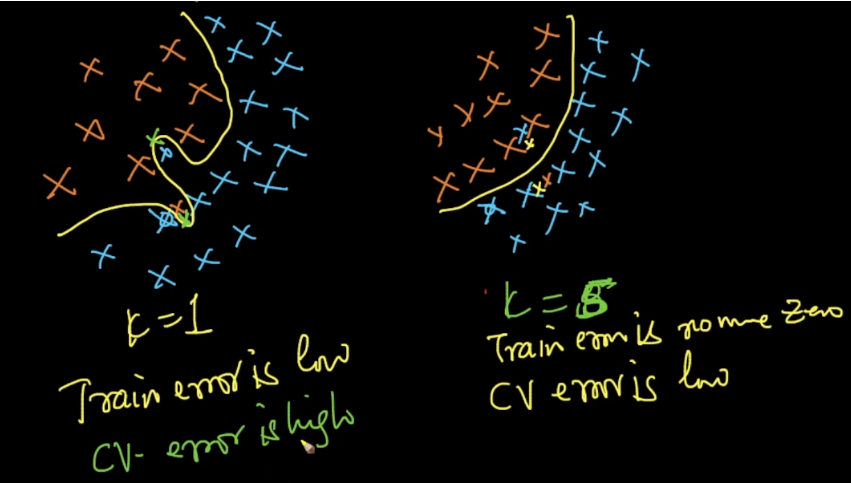 k=1
Train error is low
CV- error is high
k=5
Train error is no more zero
CV error is low